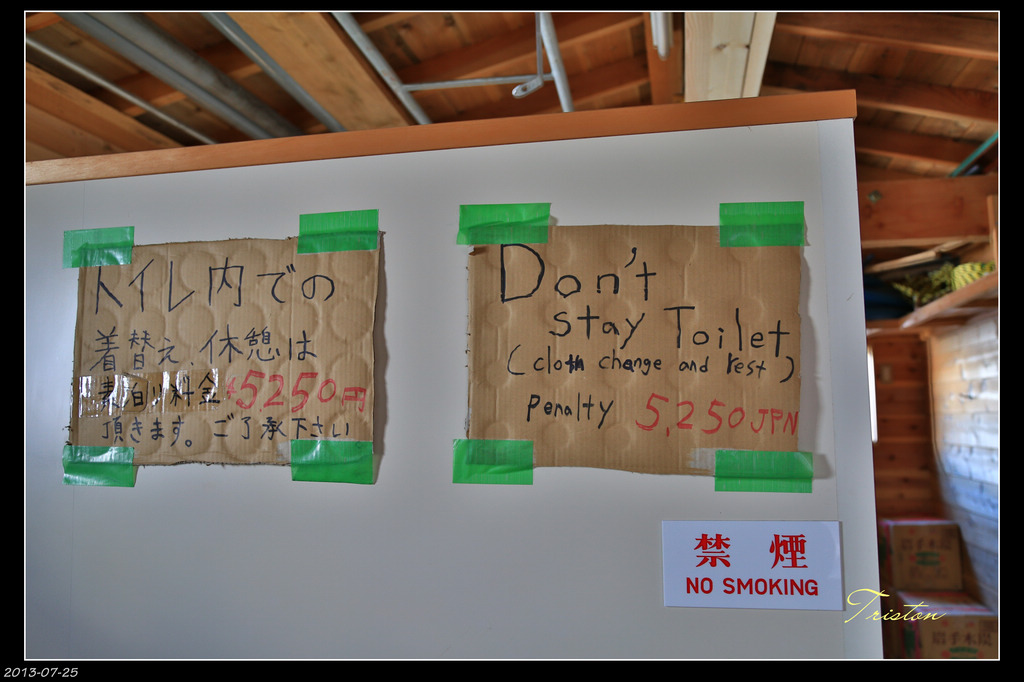 トイレ内での
着替え、休憩は
素泊り料金 ¥5,250円
頂きます。ご了承下さい
Don't
stay Toilet
(cloth change and rest)
penalty 5,250 JPN
禁 煙
NO SMOKING
Triston
2013-07-25